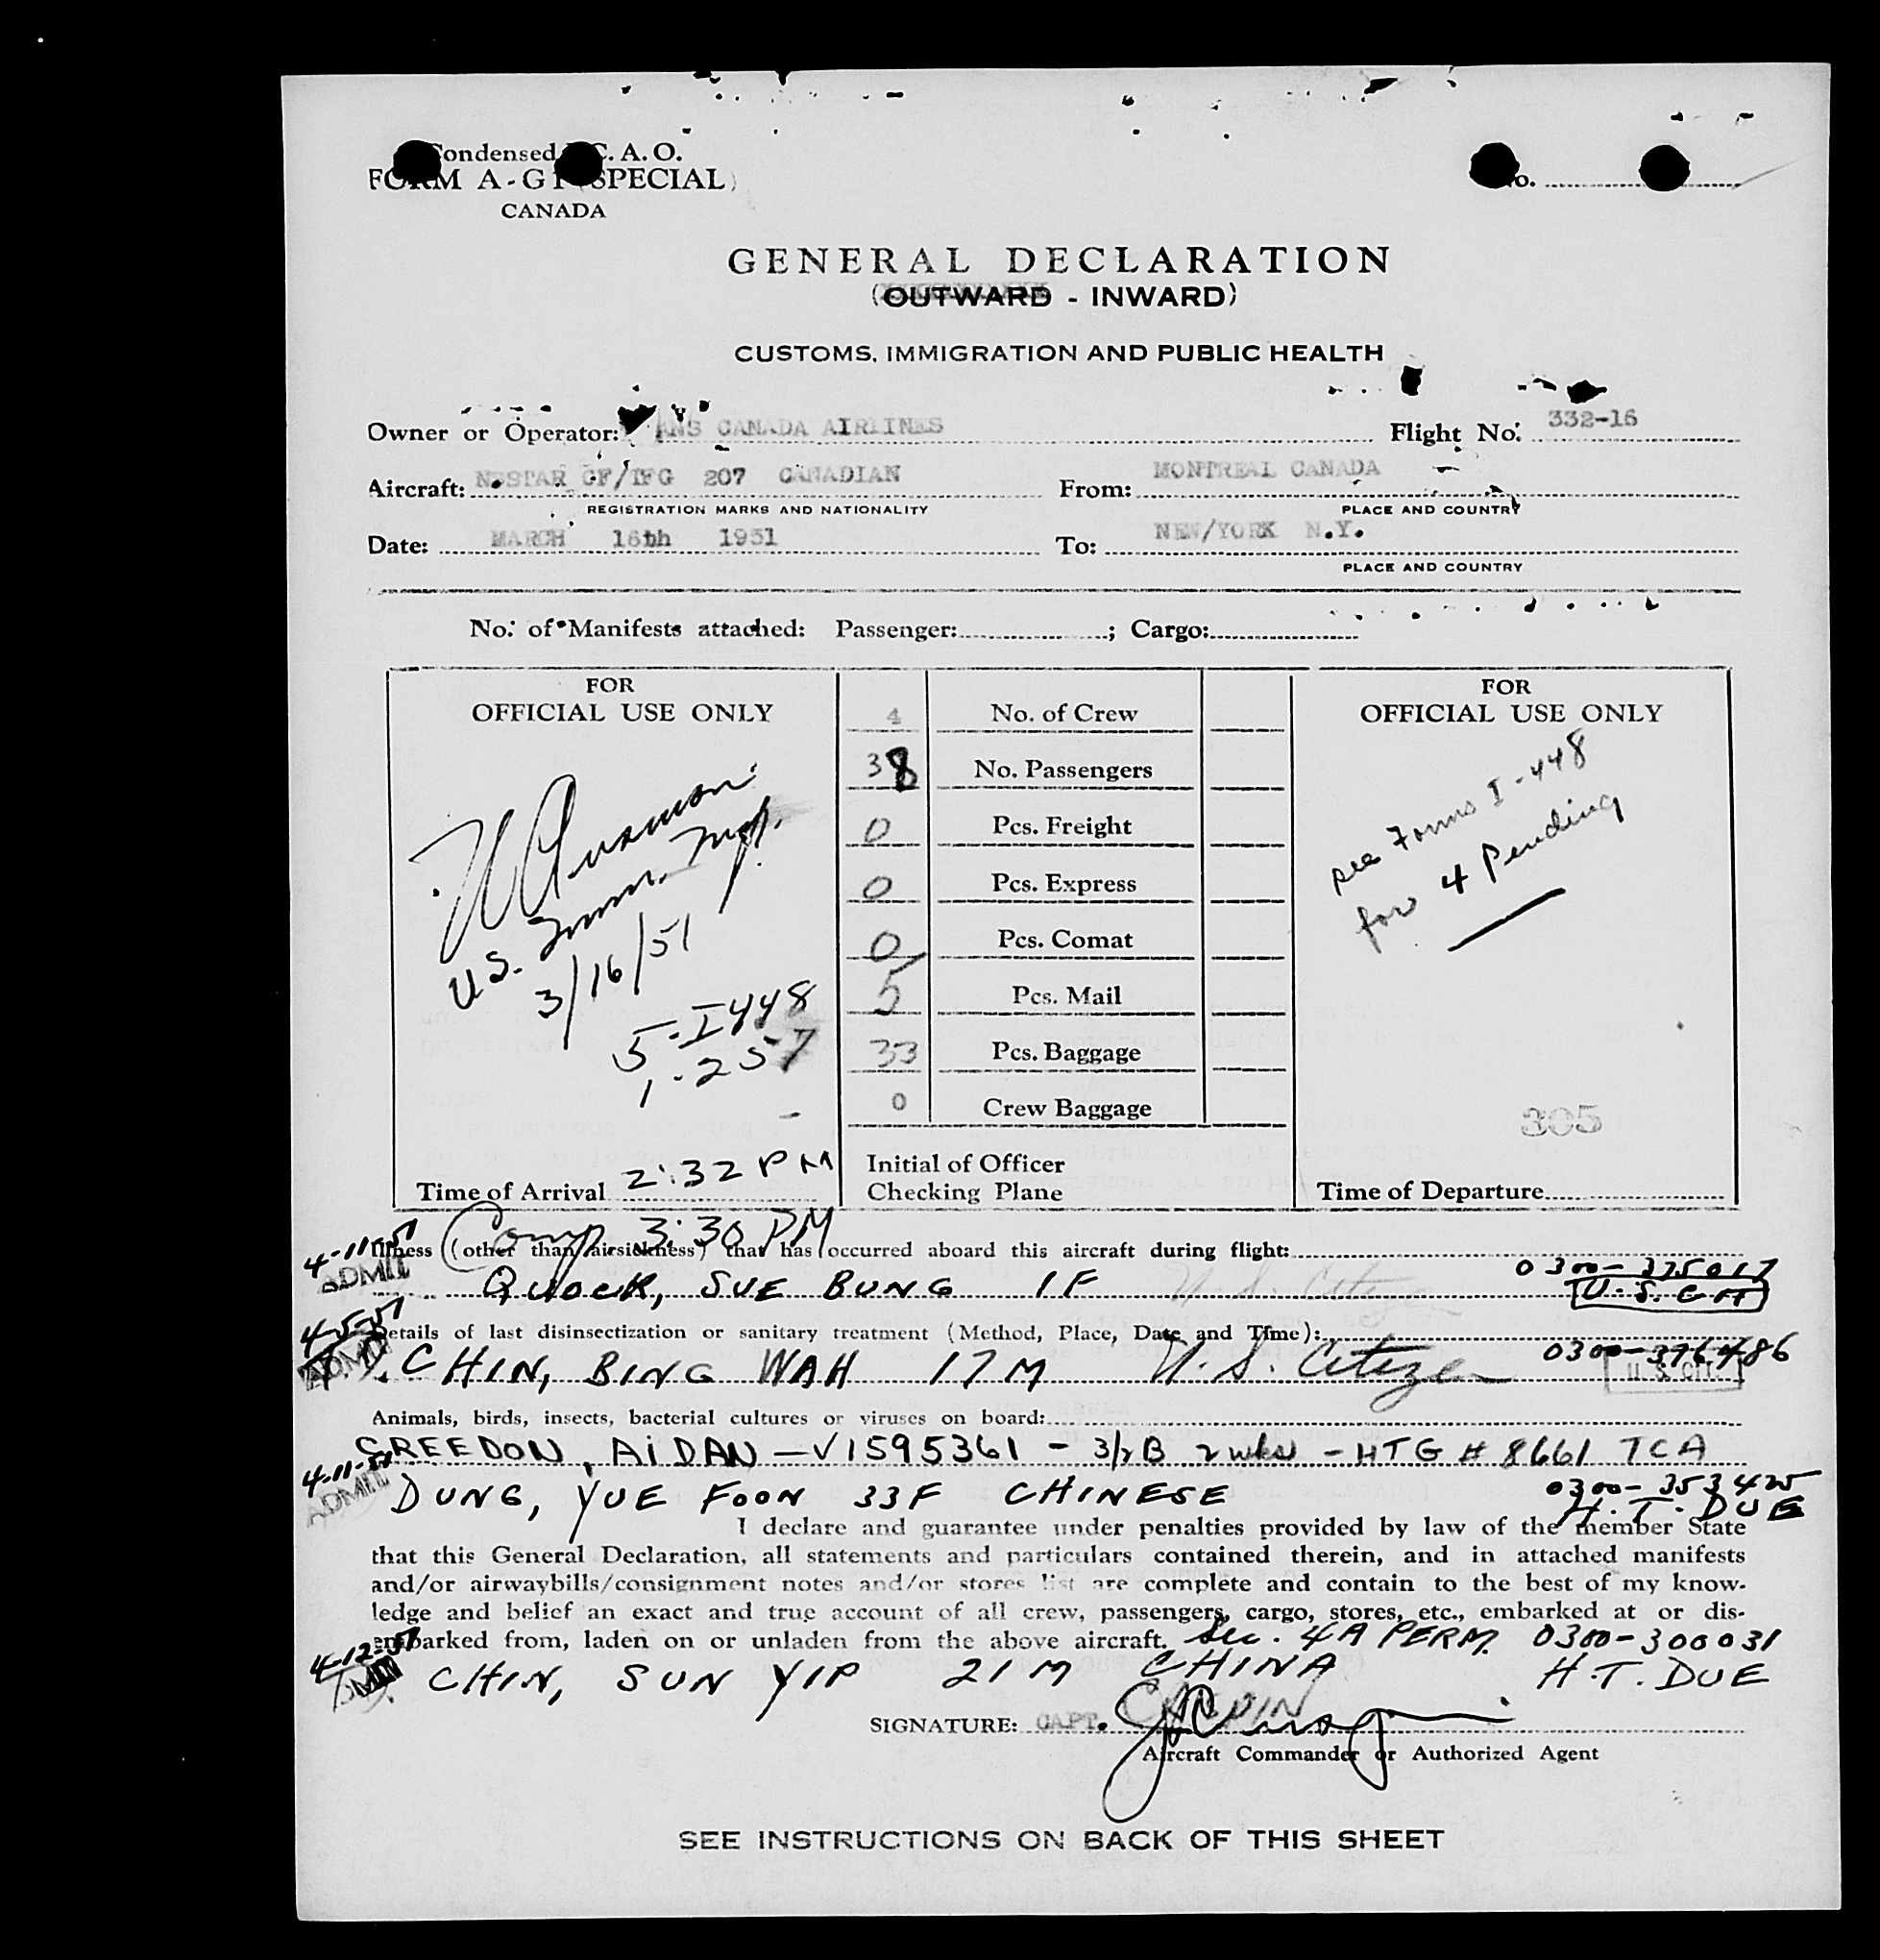 Condensed C. A. O.
FORM A-G1 (SPECIAL)
CANADA
No.
GENERAL DECLARATION
(OUTWARD - INWARD)
CUSTOMS, IMMIGRATION AND PUBLIC HEALTH
Owner or Operator: ANS CANADA AIRLINES Flight No: 332-16
Aircraft: NOSTAR CF/TFG 207 CANADIAN From: MONTREAL CANADA
REGISTRATION MARKS AND NATIONALITY PLACE AND COUNTRY
Date: MARCH 16th 1951 To: NEW/YORK N.Y.
PLACE AND COUNTRY
No. of Manifests attached: Passenger: ; Cargo:
FOR
OFFICIAL USE ONLY
U.S. Imm. Insp.
3/16/51
5-I 448
1-257
Time of Arrival 2:32 PM
4 No. of Crew
38 No. Passengers
0 Pcs. Freight
0 Pcs. Express
0 Pcs. Comat
5 Pcs. Mail
33 Pcs. Baggage
0 Crew Baggage
Initial of Officer
Checking Plane
FOR
OFFICIAL USE ONLY
see Forms I-448
for 4 Pending
305
Time of Departure
Comp. 3:30 PM
4-11-51 Illness (other than airsickness) that has occurred aboard this aircraft during flight:
ADMIT QUOCK, SUE BUNG 1F U.S. Citizen 0300-375017
U.S. CIT
4-5-51 Details of last disinsectization or sanitary treatment (Method, Place, Date and Time):
ADMIT CHIN, BING WAH 17M U.S. Citizen 0300-376486
U.S. CIT.
Animals, birds, insects, bacterial cultures or viruses on board:
CREEDON, AIDAN - V1595361 - 3/2 B 2 wks - HTG # 8661 TCA
4-11-51 ADMIT DUNG, YUE FOON 33F CHINESE 0300-353425
H.T. DUE
I declare and guarantee under penalties provided by law of the member State
that this General Declaration, all statements and particulars contained therein, and in attached manifests
and/or airwaybills/consignment notes and/or stores list are complete and contain to the best of my know-
ledge and belief an exact and true account of all crew, passengers, cargo, stores, etc., embarked at or dis-
embarked from, laden on or unladen from the above aircraft. Sec. 4A PERM. 0300-300031
4-12-51 CHIN, SUN YIP 21M CHINA H.T. DUE
SIGNATURE: CAPT.
Aircraft Commander or Authorized Agent
SEE INSTRUCTIONS ON BACK OF THIS SHEET